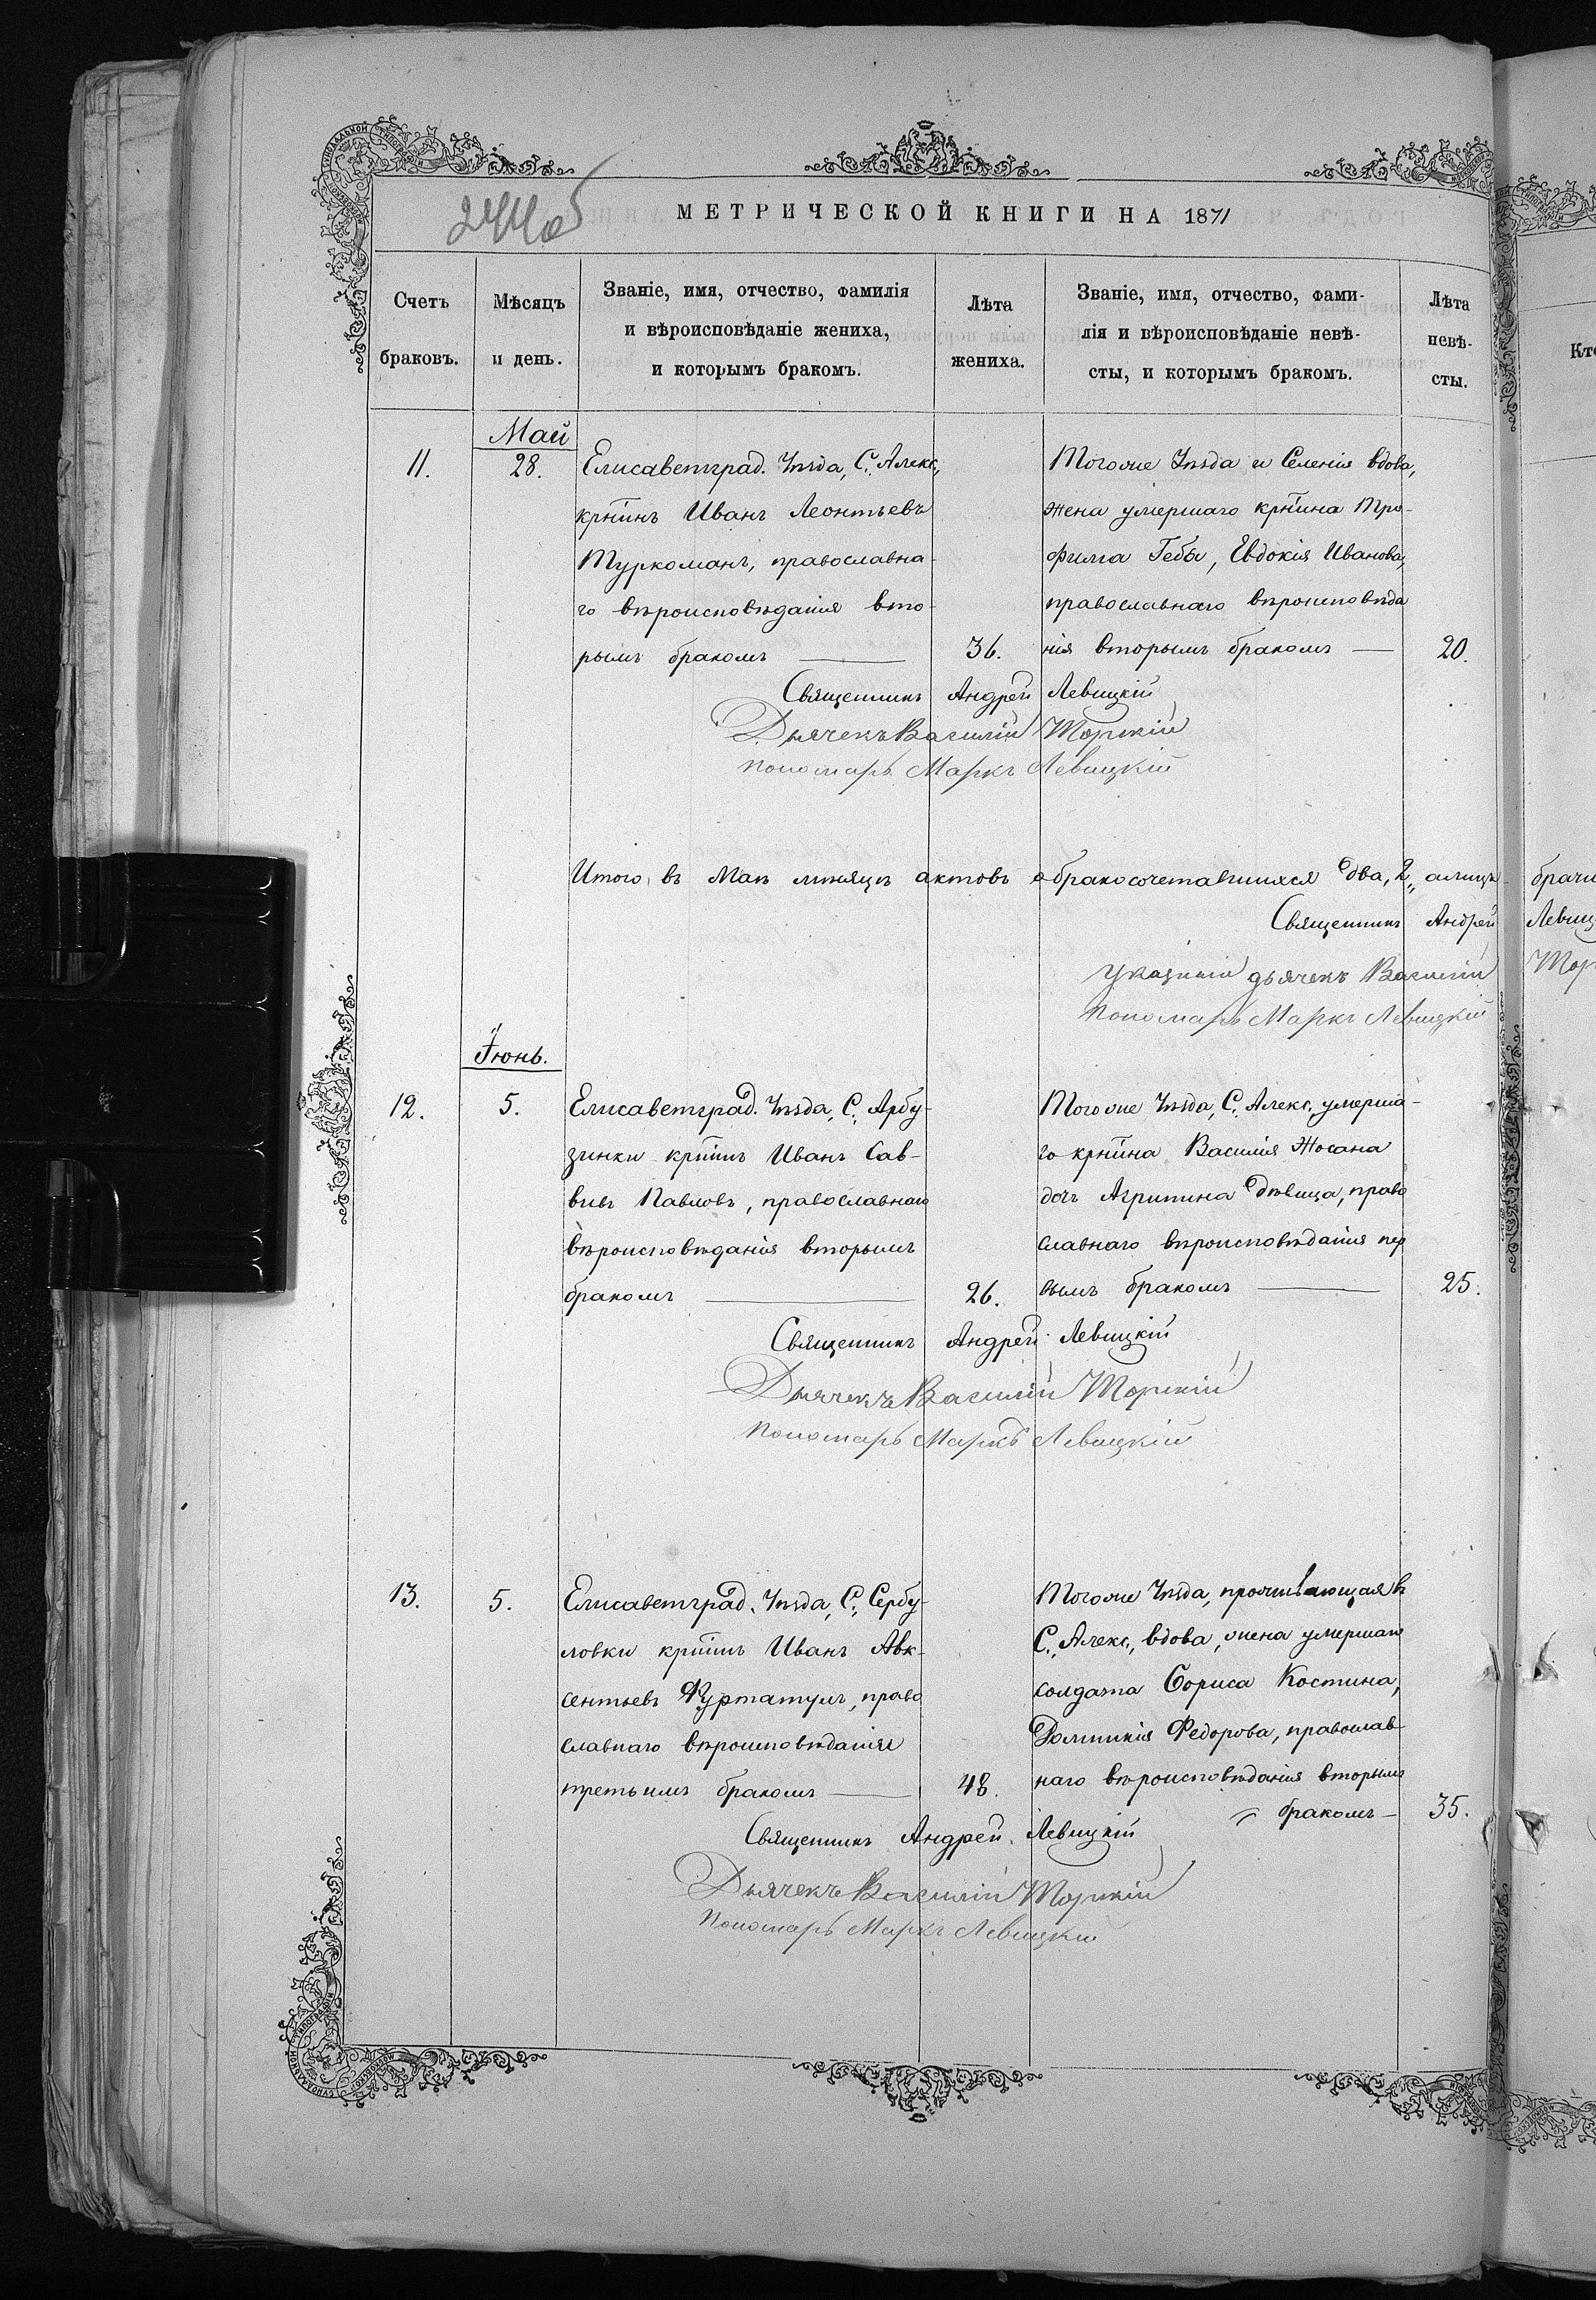 МЕТРИЧЕСКОЙ КНИГИ НА 1871
Счетъ браковъ.
Мѣсяцъ и день.
Званіе, имя, отчество, фамилія
и вѣроисповѣданіе жениха,
и которымъ бракомъ.
Лѣта жениха.
Званіе, имя, отчество, фами-
лія и вѣроисповѣданіе невѣ-
сты, и которымъ бракомъ.
Лѣта невѣ-
сты.
Май
11.
28.
Елисаветград. Уѣзда, С. Алекс.,
крн̃инъ Иванъ Леонтьевъ
Туркоманъ, православна-
го вѣроисповѣданія вто-
рымъ бракомъ
36.
Тогоже Уѣзда и Селенія вдова,
жена умершаго крн̃ина Тро-
фима Геба, Евдокія Иванова,
православнаго вѣроисповѣда
нія вторымъ бракомъ
20.
Священникъ Андрей Левицкій
Дьячекъ Василій Торскій
Пономарь Маркъ Левицкій
Итого въ Маѣ мѣсяцѣ актовъ о бракосочетавшихся два, 2,
Священникъ Андрей
Указный дьячекъ Василій
Пономарь Маркъ Левицкій
Іюнь.
12.
5.
Елисаветград. Уѣзда, С. Арбу-
зинки крн̃инъ Иванъ Сав-
винъ Павловъ, православнаго
вѣроисповѣданія вторымъ
бракомъ
26.
Тогоже Уѣзда, С. Алекс. умерша-
го крн̃ина Василія Жосана
дочь Агрипина дѣвица, право
славнаго вѣроисповѣданія пер
вымъ бракомъ
25.
Священникъ Андрей Левицкій
Дьячекъ Василій Торскій
Пономарь Маркъ Левицкій
13.
5.
Елисаветград. Уѣзда, С. Сербу-
ловки крн̃инъ Иванъ Авк-
сентьевъ Куртатулъ, право
славнаго вѣроисповѣданія
третьимъ бракомъ
48.
Тогоже Уѣзда, проживающая въ
С. Алекс., вдова, жена умершаго
солдата Бориса Костина,
Домникія Федорова, православ-
наго вѣроисповѣданія вторымъ
бракомъ
35.
Священникъ Андрей Левицкій
Дьячекъ Василій Торскій
Пономарь Маркъ Левицкій